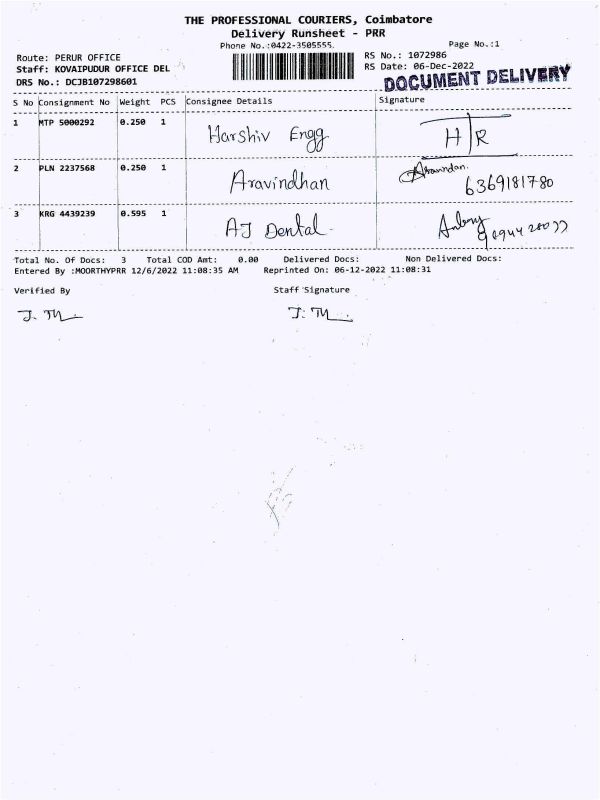 THE PROFESSIONAL COURIERS, Coimbatore
Delivery Runsheet - PRR
Phone No.:0422-3505555.
Page No.:1
Route: PERUR OFFICE
RS No.: 1072986
Staff: KOVAIPUDUR OFFICE DEL
RS Date: 06-Dec-2022
DRS No.: DCJB107298601
DOCUMENT DELIVERY
S No Consignment No Weight PCS Consignee Details Signature
1 MTP 5000292 0.250 1 Harshiv Engg H R
2 PLN 2237568 0.250 1 Aravindhan 6369181780
3 KRG 4439239 0.595 1 AJ Dental
Total No. Of Docs: 3 Total COD Amt: 0.00 Delivered Docs: Non Delivered Docs:
Entered By :MOORTHYPRR 12/6/2022 11:08:35 AM Reprinted On: 06-12-2022 11:08:31
Verified By Staff Signature